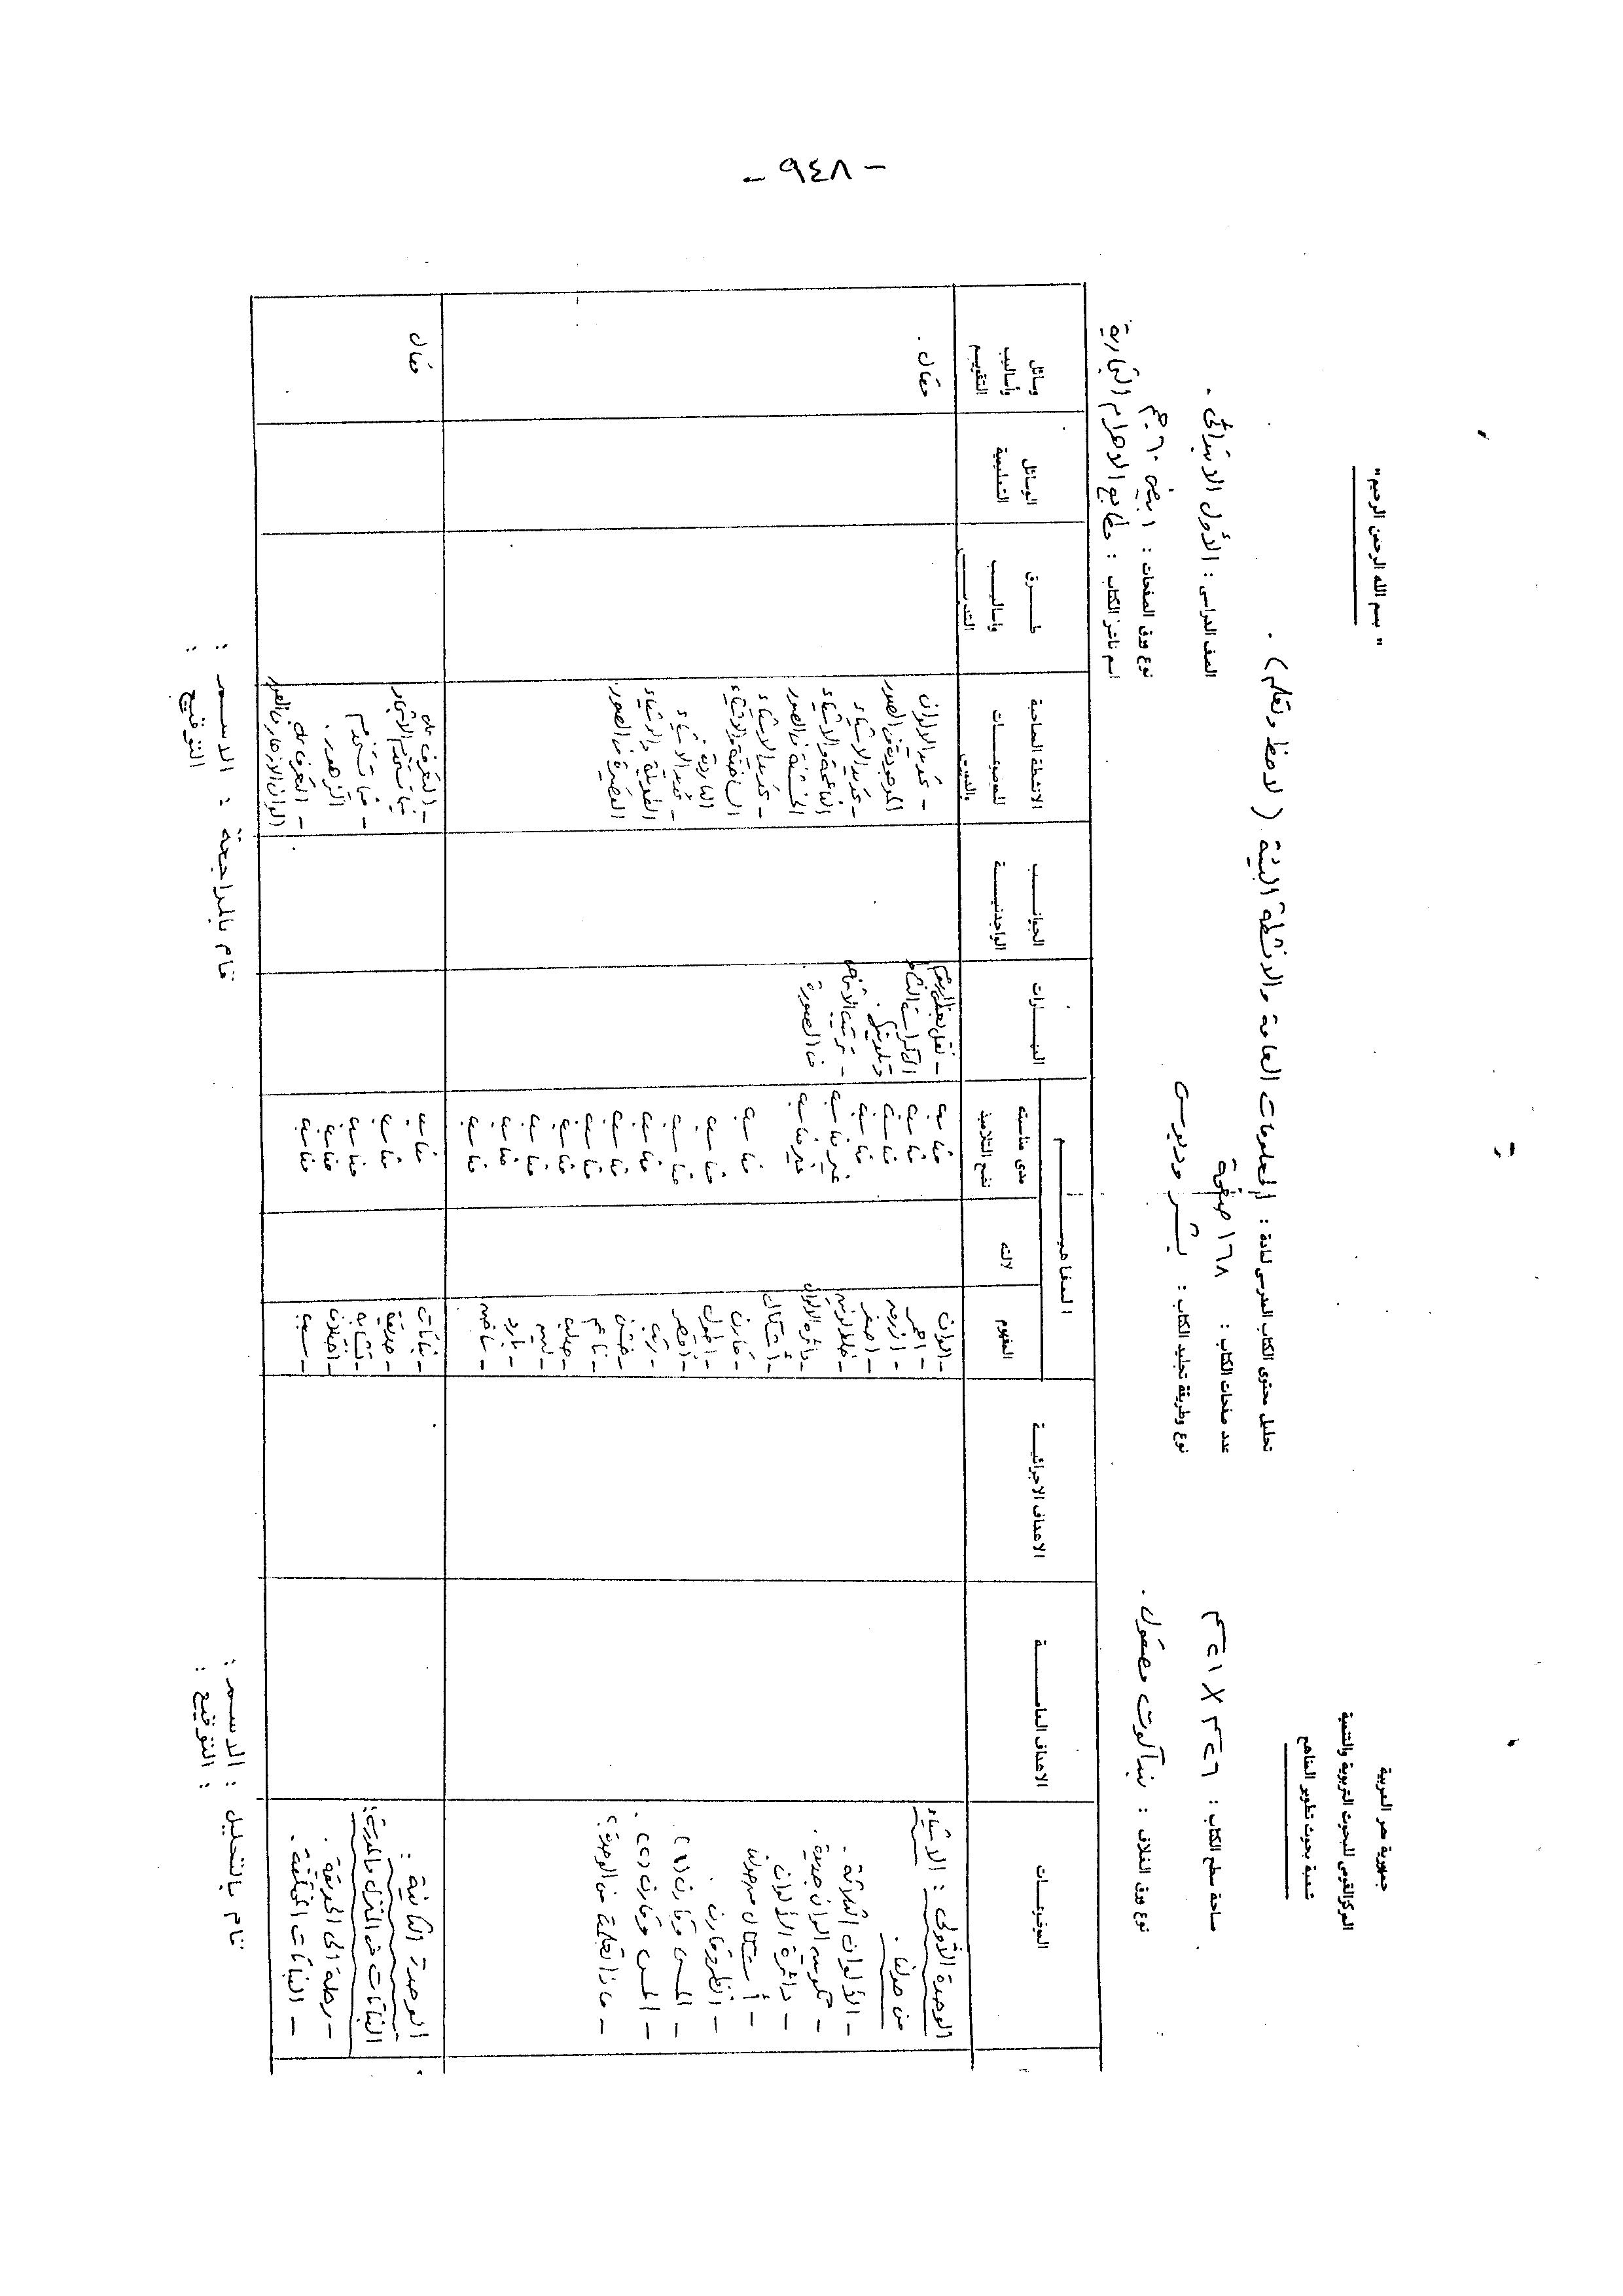 - ٩٤٨ -
" بسم الله الرحمن الرحيم "
جمهورية مصر العربية
المركز القومى للبحوث التربوية والتنمية
شعبة بحوث تطوير المناهج
تحليل محتوى الكتاب المدرسى لمادة : المعلومات العامة والانشطة البيئية ( لاحظ وتعلم ) .
الصف الدراسى : الأول الابتدائى .
عدد صفحات الكتاب : ١٦٨ صفحة
مساحة سطح الكتاب :
نوع ورق الصفحات : ابيض ٦٠ جم
نوع وطريقة تجليد الكتاب : بشر ودبوس
نوع ورق الغلاف : مصقول .
اسم ناشر الكتاب : مطابع الاهرام التجارية
الموضوعات
الاهداف العامة
الاهداف الاجرائية
المفاهيم
المفهوم
مدى مناسبته
نضج التلاميذ
المهارات
الجوانب
الوجدانية
الانشطة المصاحبة
للموضوعات
طرق
واساليب
التدريس
الوسائل
التعليمية
وسائل
وأساليب
التقويم
الوحدة الأولى : الاشياء
من حولنا .
- الألوان الثلاثة .
- تكوين الوان جديدة .
- دائرة الألوان
- أشكال من حولنا
- انظر وقارن .
- المس وقارن (١) .
- المس وقارن (٢) .
- ماذا تعلمت من الوحدة ؟
- الوان
- احمر
- ازرق
- اصفر
- دائرة الالوان
- أشكال
- قارن
- اطول
- اقصر
- رتب
- خشن
- ناعم
- صلب
- لين
- بارد
- ساخن
مناسب
مناسب
مناسب
مناسب
غير مناسب
غير مناسب
مناسب
مناسب
مناسب
مناسب
مناسب
مناسب
مناسب
مناسب
مناسب
مناسب
وتلوينها .
- ترتيب الاشخاص
فى الصورة .
- تحديد الالوان
الموجودة فى الصور
- تحديد الاشياء
الناعمة والاشياء
الخشنة فى الصور
- تحديد الاشياء
الساخنة والاشياء
الباردة .
- تحديد الاشياء
الطويلة والاشياء
القصيرة فى الصور .
مقال .
الوحدة الثانية :
النباتات فى المنزل والمدرسة
- رحلة الى الحديقة .
- النباتات المختلفة .
- نباتات
- حديقة
- تشابه
- اختلاف
مناسب
مناسب
مناسب
مناسب
مناسب
- التعرف على
فيما تستخدم الاشجار
- فيما تستخدم
الزهور .
- التعرف على
الوان الازهار فى الصور
مقال
قام بالتحليل : الاسم :
التوقيع :
قام بالمراجعة : الاسم :
التوقيع :